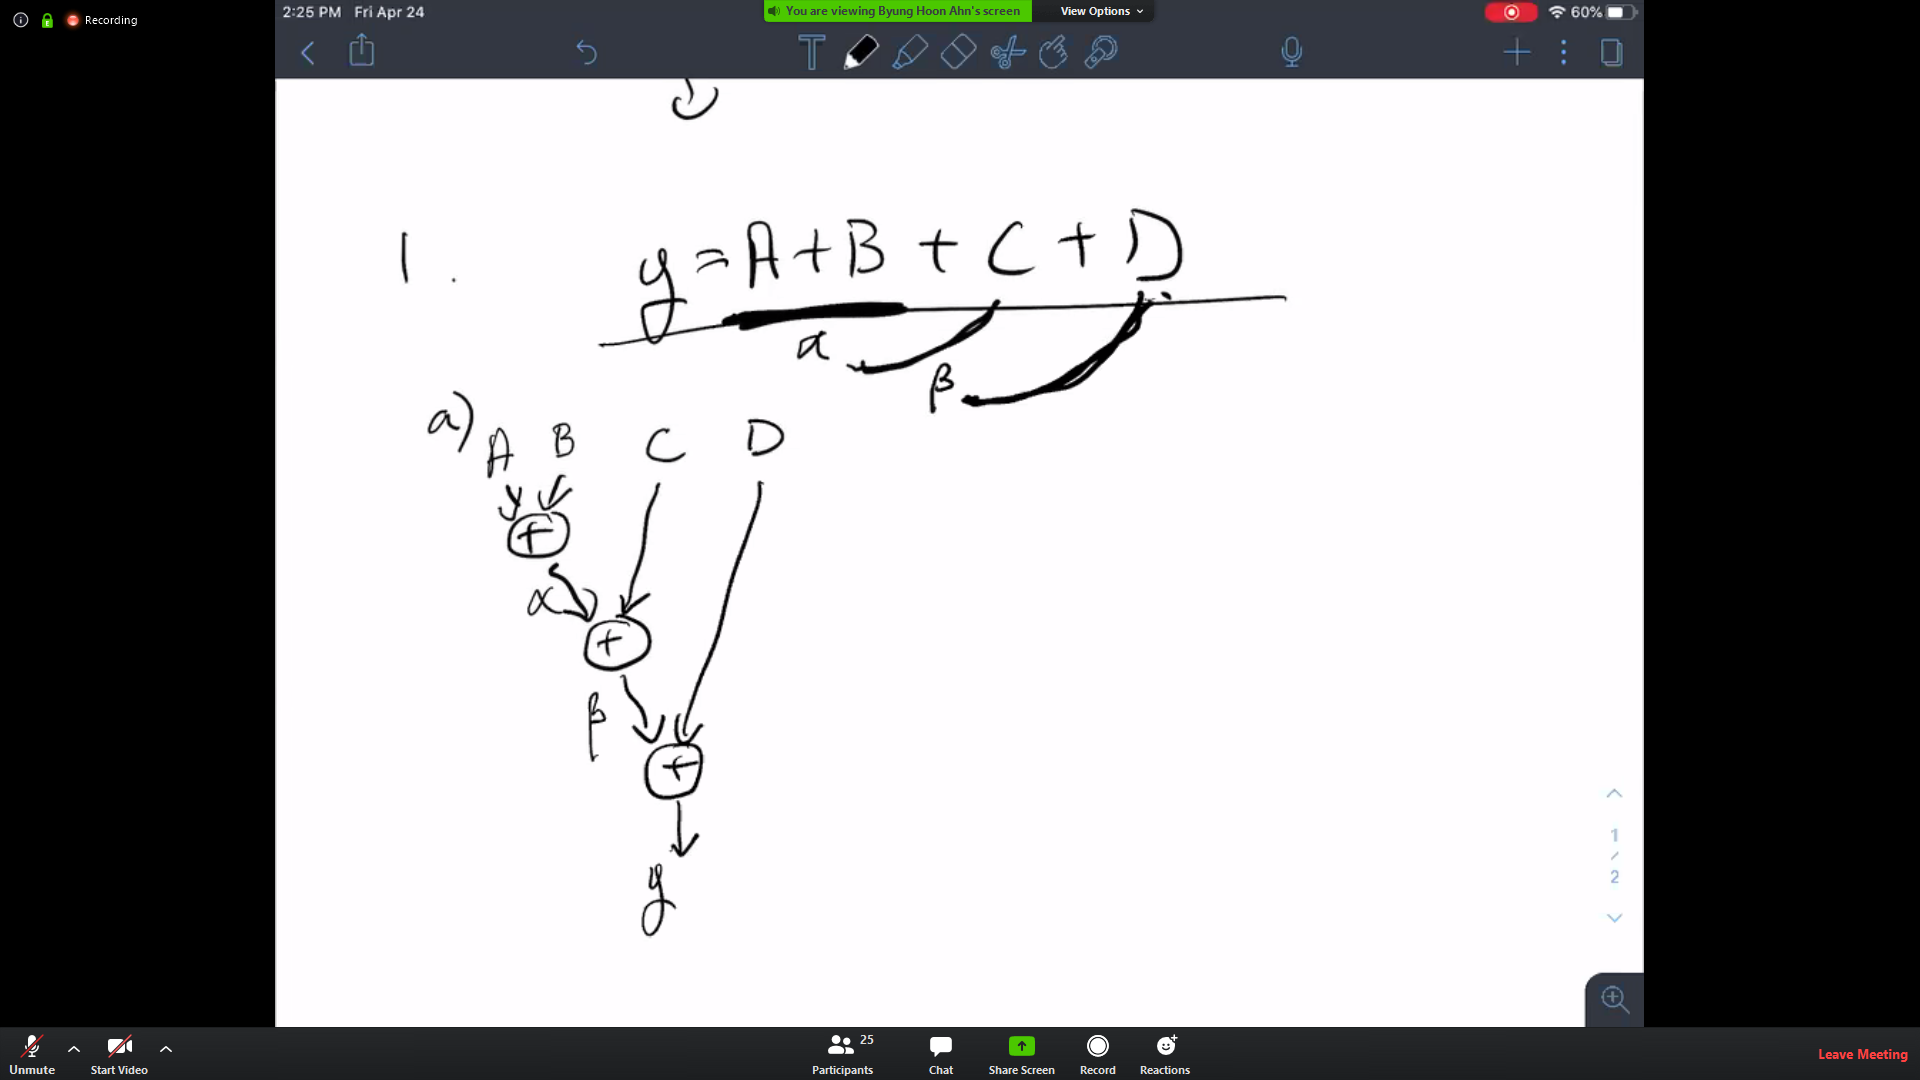 Recording
2:25 PM Fri Apr 24
You are viewing Byung Hoon Ahn's screen
View Options
60%
T
1. y = A + B + C + D
α
β
a)
A B C D
+
α
+
β
+
y
1
/
2
Unmute
Start Video
Participants
25
Chat
Share Screen
Record
Reactions
Leave Meeting